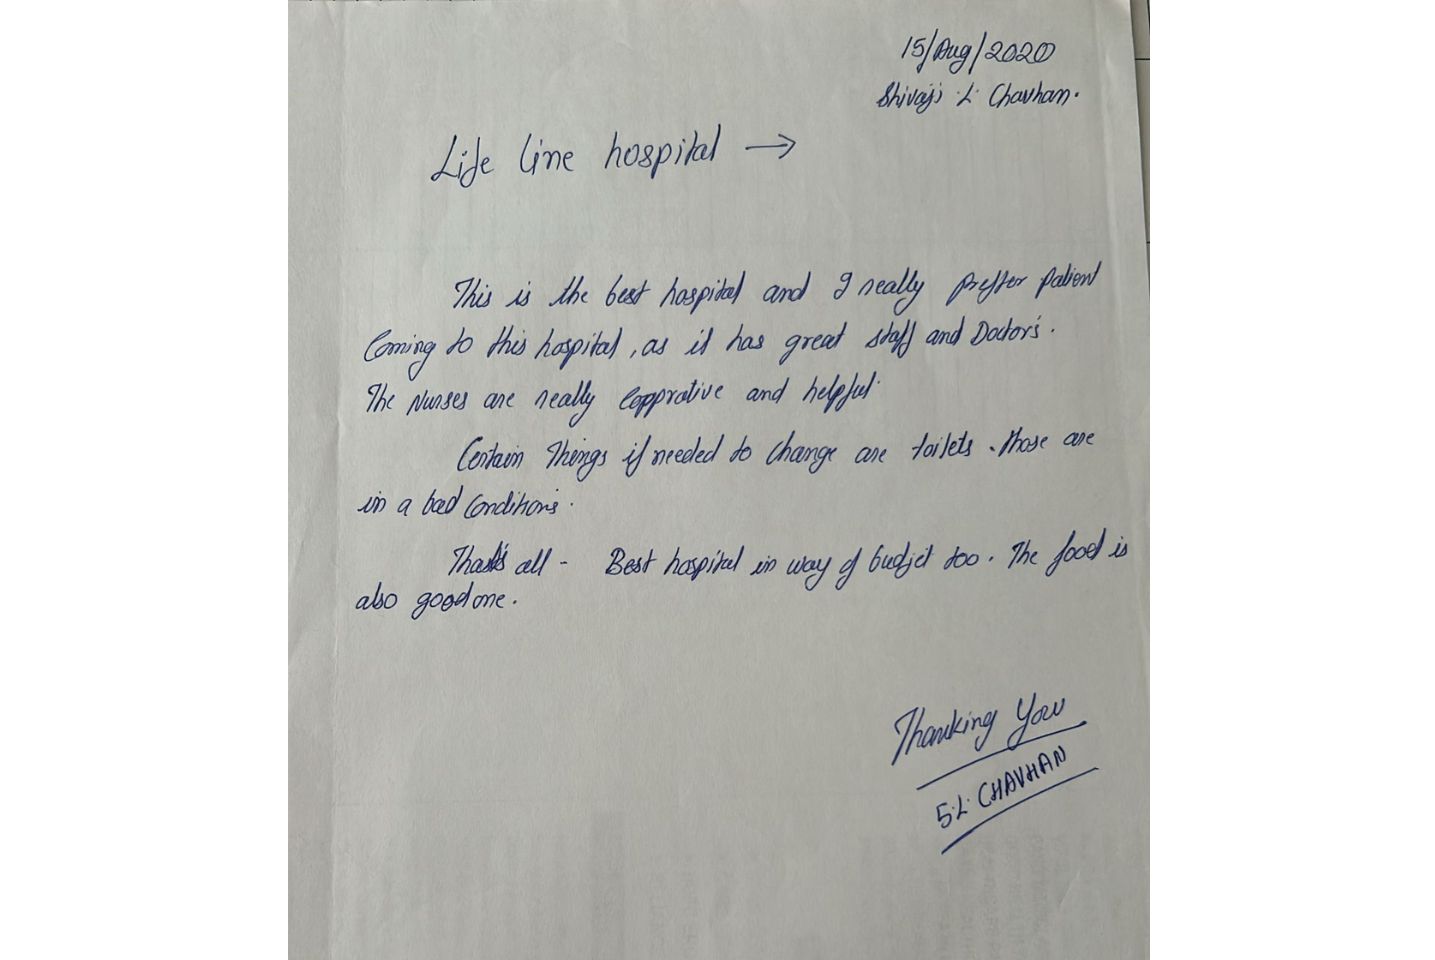 15/Aug/2020
Shivaji .L. Chavhan.
Life line hospital →
This is the best hospital and I really preffer patient
Coming to this hospital, as it has great staff and Doctor's.
The Nurses are really copprative and helpful.
Certain Things if needed to change are toilets. Those are
in a bad Conditions.
That's all - Best hospital in way of budjet too. The food is
also good one.
Thanking You
S.L. CHAVHAN